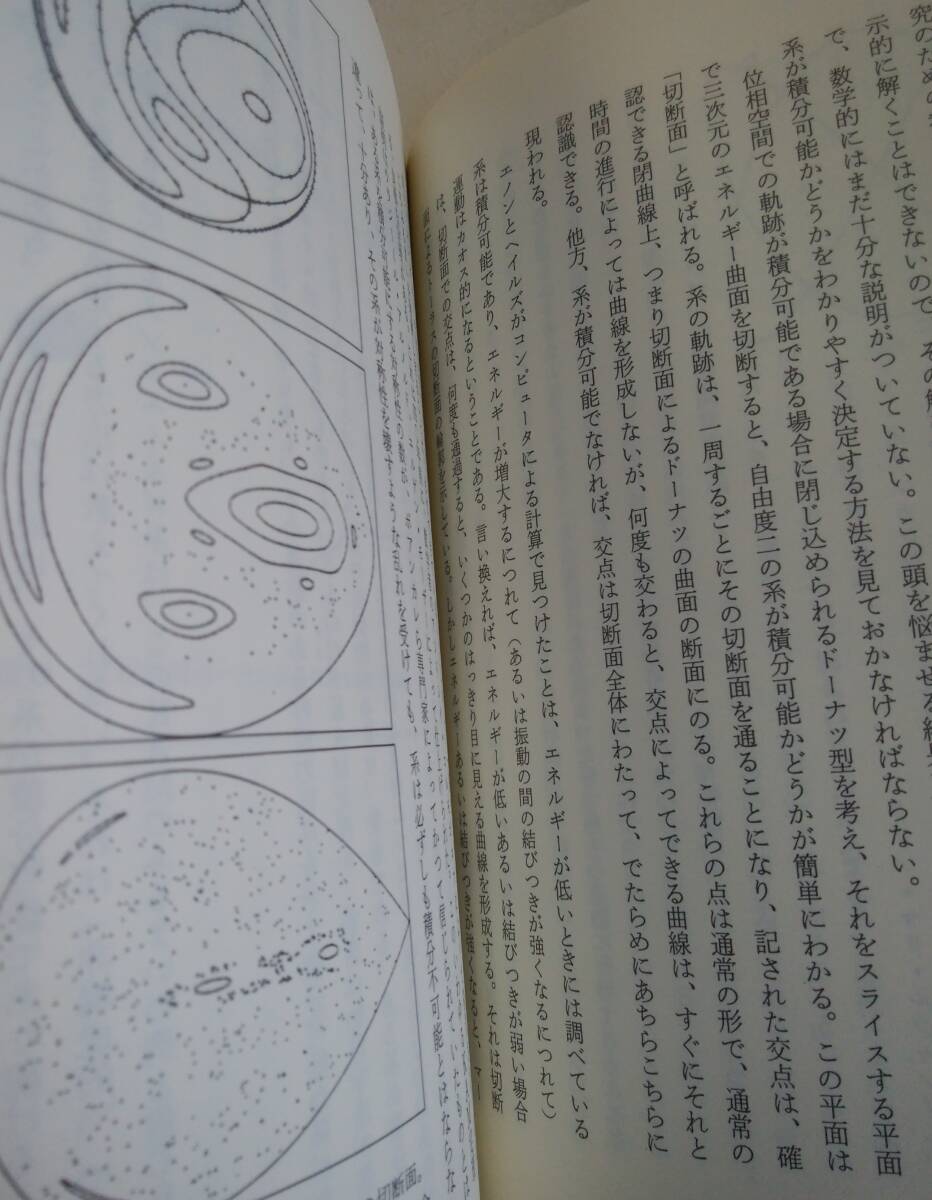 究のための
示的に解くことはできないので、その解
で、数学的にはまだ十分な説明がついていない。この頭を悩ませる結
系が積分可能かどうかをわかりやすく決定する方法を見ておかなければならない。
位相空間での軌跡が積分可能である場合に閉じ込められるドーナツ型を考え、それをスライスする平面
で三次元のエネルギー曲面を切断すると、自由度二の系が積分可能かどうかが簡単にわかる。この平面は
「切断面」と呼ばれる。系の軌跡は、一周するごとにその切断面を通ることになり、記された交点は、確
認できる閉曲線上、つまり切断面によるドーナツの曲面の断面にのる。これらの点は通常の形で、通常の
時間の進行によっては曲線を形成しないが、何度も交わると、交点によってできる曲線は、すぐにそれと
認識できる。他方、系が積分可能でなければ、交点は切断面全体にわたって、でたらめにあちらこちらに
現われる。
エノンとヘイルズがコンピュータによる計算で見つけたことは、エネルギーが低いときには調べている
系は積分可能であり、エネルギーが増大するにつれて（あるいは振動の間の結びつきが強くなるにつれて）
運動はカオス的になるということである。言い換えれば、エネルギーが低いあるいは結びつきが弱い場合
は、切断面での交点は、何度も通過すると、いくつかのはっきり目に見える曲線を形成する。それは切断
面によるトーラスの切断面の輪郭を示している。しかしエネルギーあるいは結びつきが強くなると、マー
ポアンカレら専門家によってかつて信じられていたものとは
違って、十分あり、その系が対称性を壊すような乱れを受けても、系は必ずしも積分不可能とはならな
の切断面。